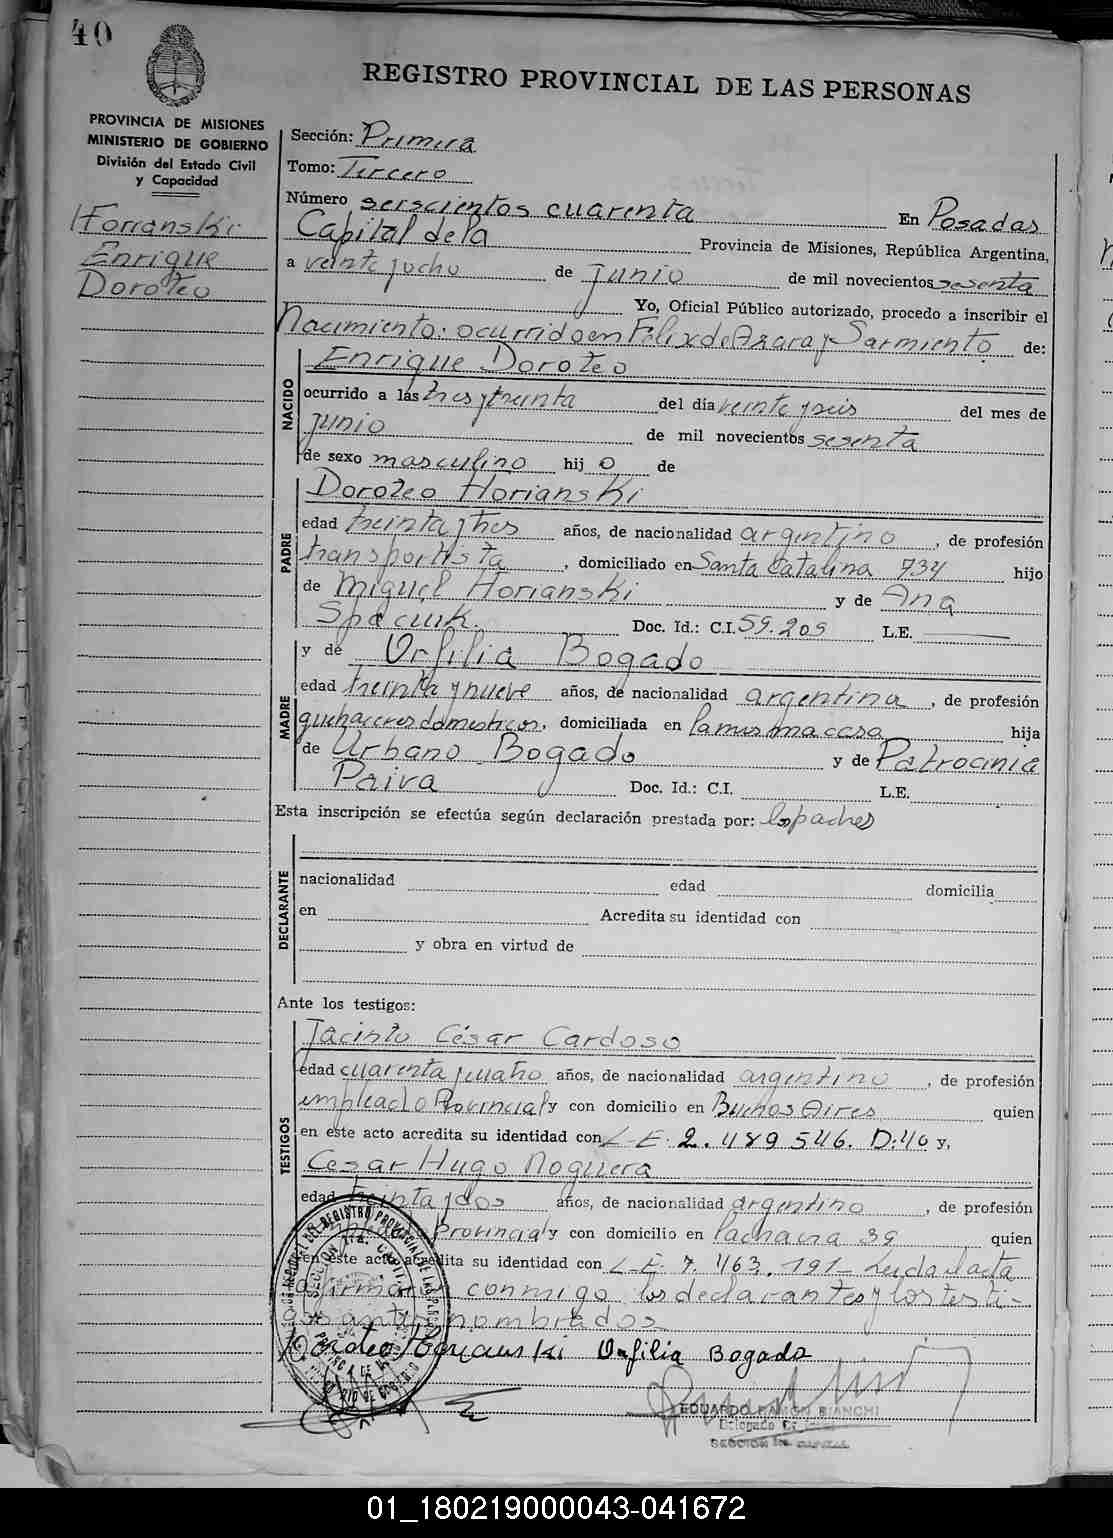 40
REGISTRO PROVINCIAL DE LAS PERSONAS
PROVINCIA DE MISIONES
MINISTERIO DE GOBIERNO
División del Estado Civil
y Capacidad
Horianski
Enrique
Doroteo
Sección: Primera
Tomo: Tercero
Número seiscientos cuarenta En Posadas
Capital de la Provincia de Misiones, República Argentina,
a veinte y ocho de junio de mil novecientos sesenta
Yo, Oficial Público autorizado, procedo a inscribir el
Nacimiento: ocurrido en Félix de Azara y Sarmiento de:
NACIDO
Enrique Doroteo
ocurrido a las tres y treinta del día veinte y seis del mes de
junio de mil novecientos sesenta
de sexo masculino hij o de
PADRE
Doroteo Horianski
edad treinta y tres años, de nacionalidad argentino, de profesión
transportista, domiciliado en Santa Catalina 734 hijo
de Miguel Horianski y de Ana
Spacuk. Doc. Id.: C.I. 59.209 L.E.
MADRE
y de Orfilia Bogado
edad treinta y nueve años, de nacionalidad argentina, de profesión
quehaceres domesticos, domiciliada en la misma casa hija
de Urbano Bogado y de Patrocinia
Paiva Doc. Id.: C.I. L.E.
Esta inscripción se efectúa según declaración prestada por: los padres
DECLARANTE
nacionalidad edad domicilia
en Acredita su identidad con
y obra en virtud de
Ante los testigos:
TESTIGOS
Jacinto César Cardoso
edad cuarenta y cuatro años, de nacionalidad argentino, de profesión
empleado Provincial y con domicilio en Buenos Aires quien
en este acto acredita su identidad con L.E. 2.489.546. D:40 y,
Cesar Hugo Noguera
edad treinta y dos años, de nacionalidad argentino, de profesión
empleado Provincial y con domicilio en Pachaira 39 quien
en este acto acredita su identidad con L.E. 7.463.191- Leida el acta
la firmaron conmigo los declarantes y los testi-
gos antes nombrados
Doroteo Horianski Orfilia Bogado
EDUARDO RAMON BIANCHI
01_180219000043-041672